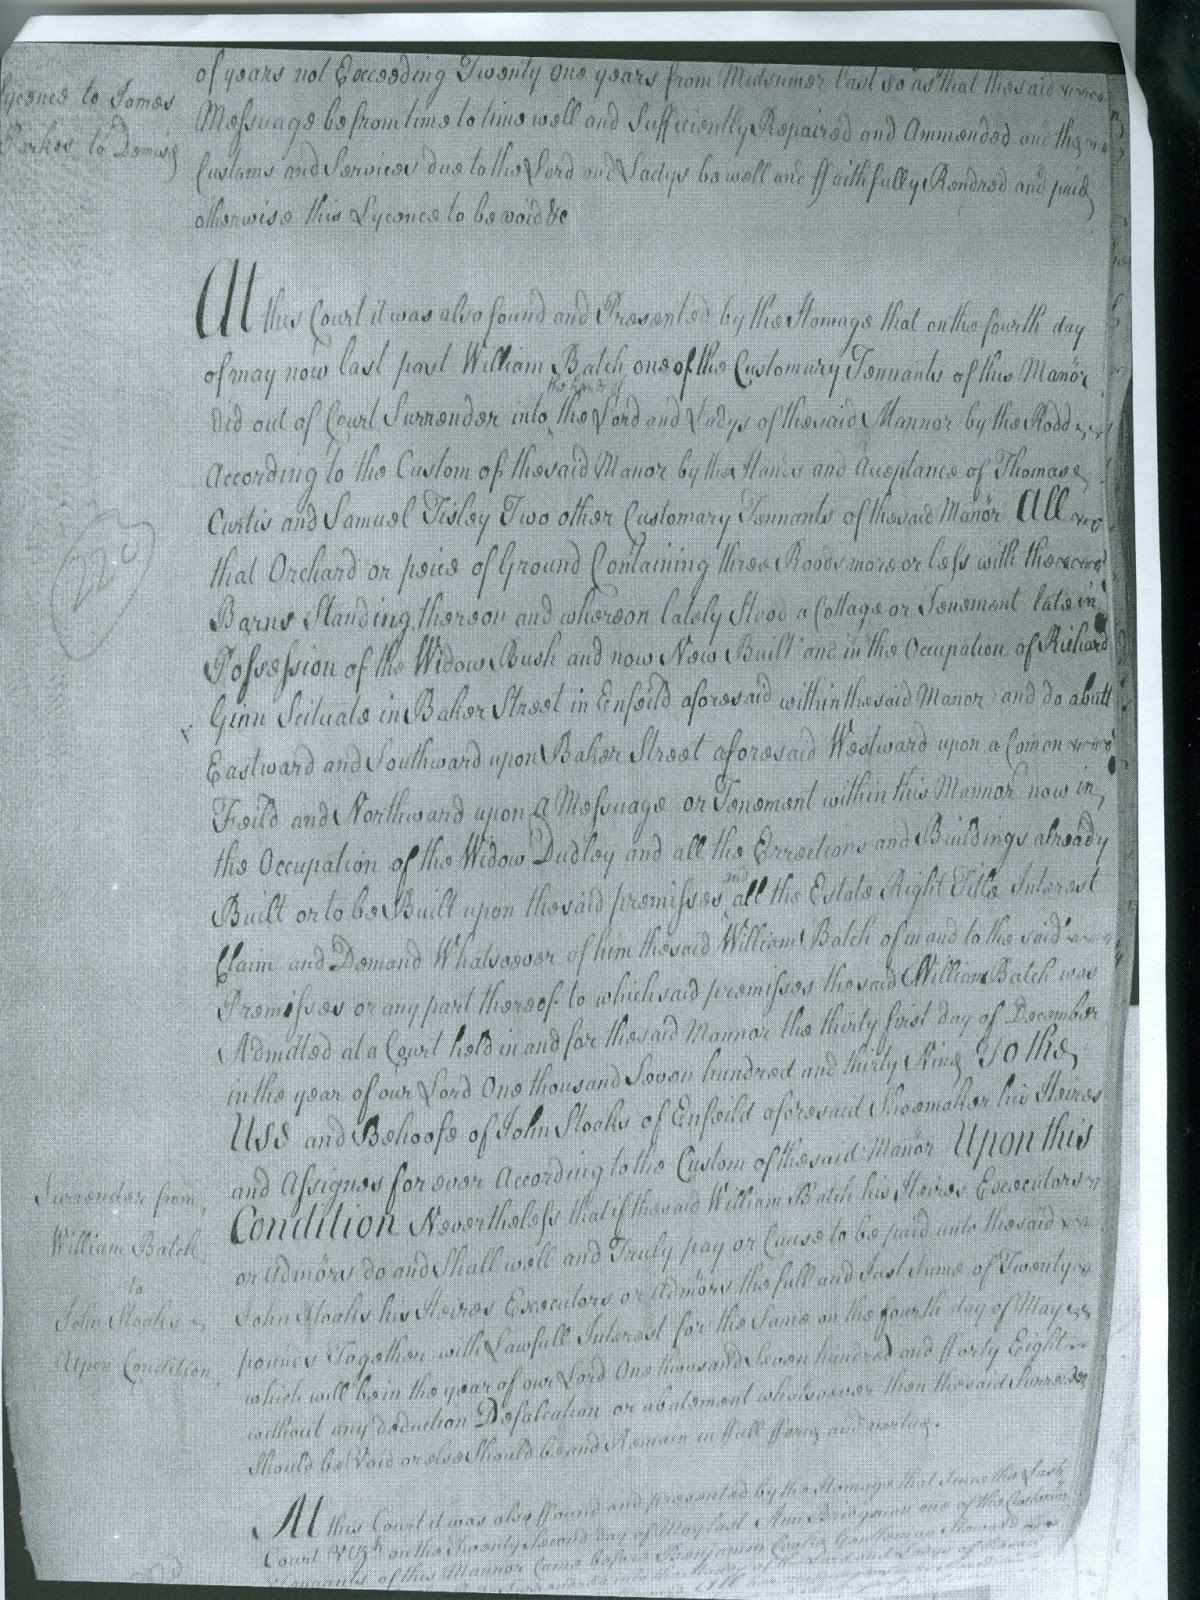 of years not Exceeding Twenty one years from Midsumer last so as that the said
Lycence to James
Parkes to Demise
Messuage be from time to time well and Sufficiently Repaired and Ammended and the
Customs and Services due to the Lord and Ladys be well and ffaithfully Rendred and paid
otherwise this Lycence to be void &c
At this Court it was also found and Presented by the Homage that on the fourth day
of may now last past William Batch one of the Customary Tennants of this Manor
the hands of
did out of Court Surrender into the Lord and Ladys of the said Mannor by the Rodd
According to the Custom of the said Manor by the Hands and Aceptance of Thomas
Curtis and Samuel Tisley Two other Customary Tennants of the said Manor All
that Orchard or peice of Ground Containing three Roods more or less with the
220
Barns Standing thereon and whereon lately Stood a Cottage or Tenement late in
Possession of the Widow Bush and now New Built and in the Occupation of Richard
Ginn Scituate in Baker Street in Enfeild aforesaid within the said Manor and do abutt
Eastward and Southward upon Baker Street aforesaid Westward upon a Comon
Feild and Northward upon a Messuage or Tenement within this Mannor now in
the Occupation of the Widow Dudley and all the Errections and Buildings already
and
Built or to be Built upon the said premisses all the Estate Right Title Interest
Claim and Demand Whatsoever of him the said William Batch of in and to the said
Premisses or any part thereof to which said premisses the said William Batch was
Admitted at a Court held in and for the said Mannor the thirty first day of December
in the year of our Lord One thousand Seven hundred and thirty Nine To the
Use and Behoofe of John Stoaks of Enfeild aforesaid Shoemaker his Heires
and Assignes for ever According to the Custom of the said Manor Upon this
Condition Nevertheless that if the said William Batch his Heires Excecutors
Surrender from
William Batch
to
John Stoaks
Upon Condition
or Admors do and Shall well and Truly pay or Cause to be paid unto the said
John Stoaks his Heires Excecutors or Admors the full and Just Sume of Twenty
pounds Together with Lawfull Interest for the Same on the fourth day of May
which will be in the year of our Lord One thousand Seven hundred and fforty Eight
without any deduction Defalcation or abatement whatsoever then the said Surrender
Should be Void or else Should be and Remain in ffull fforce and vertue.
At this Court it was also ffound and presented by the Homage that Since the Last
Court on the Twenty Second day of May last Ann Bridgman one of the Customary
Tennants of this Mannor Came before Benjamin Gentleman Steward